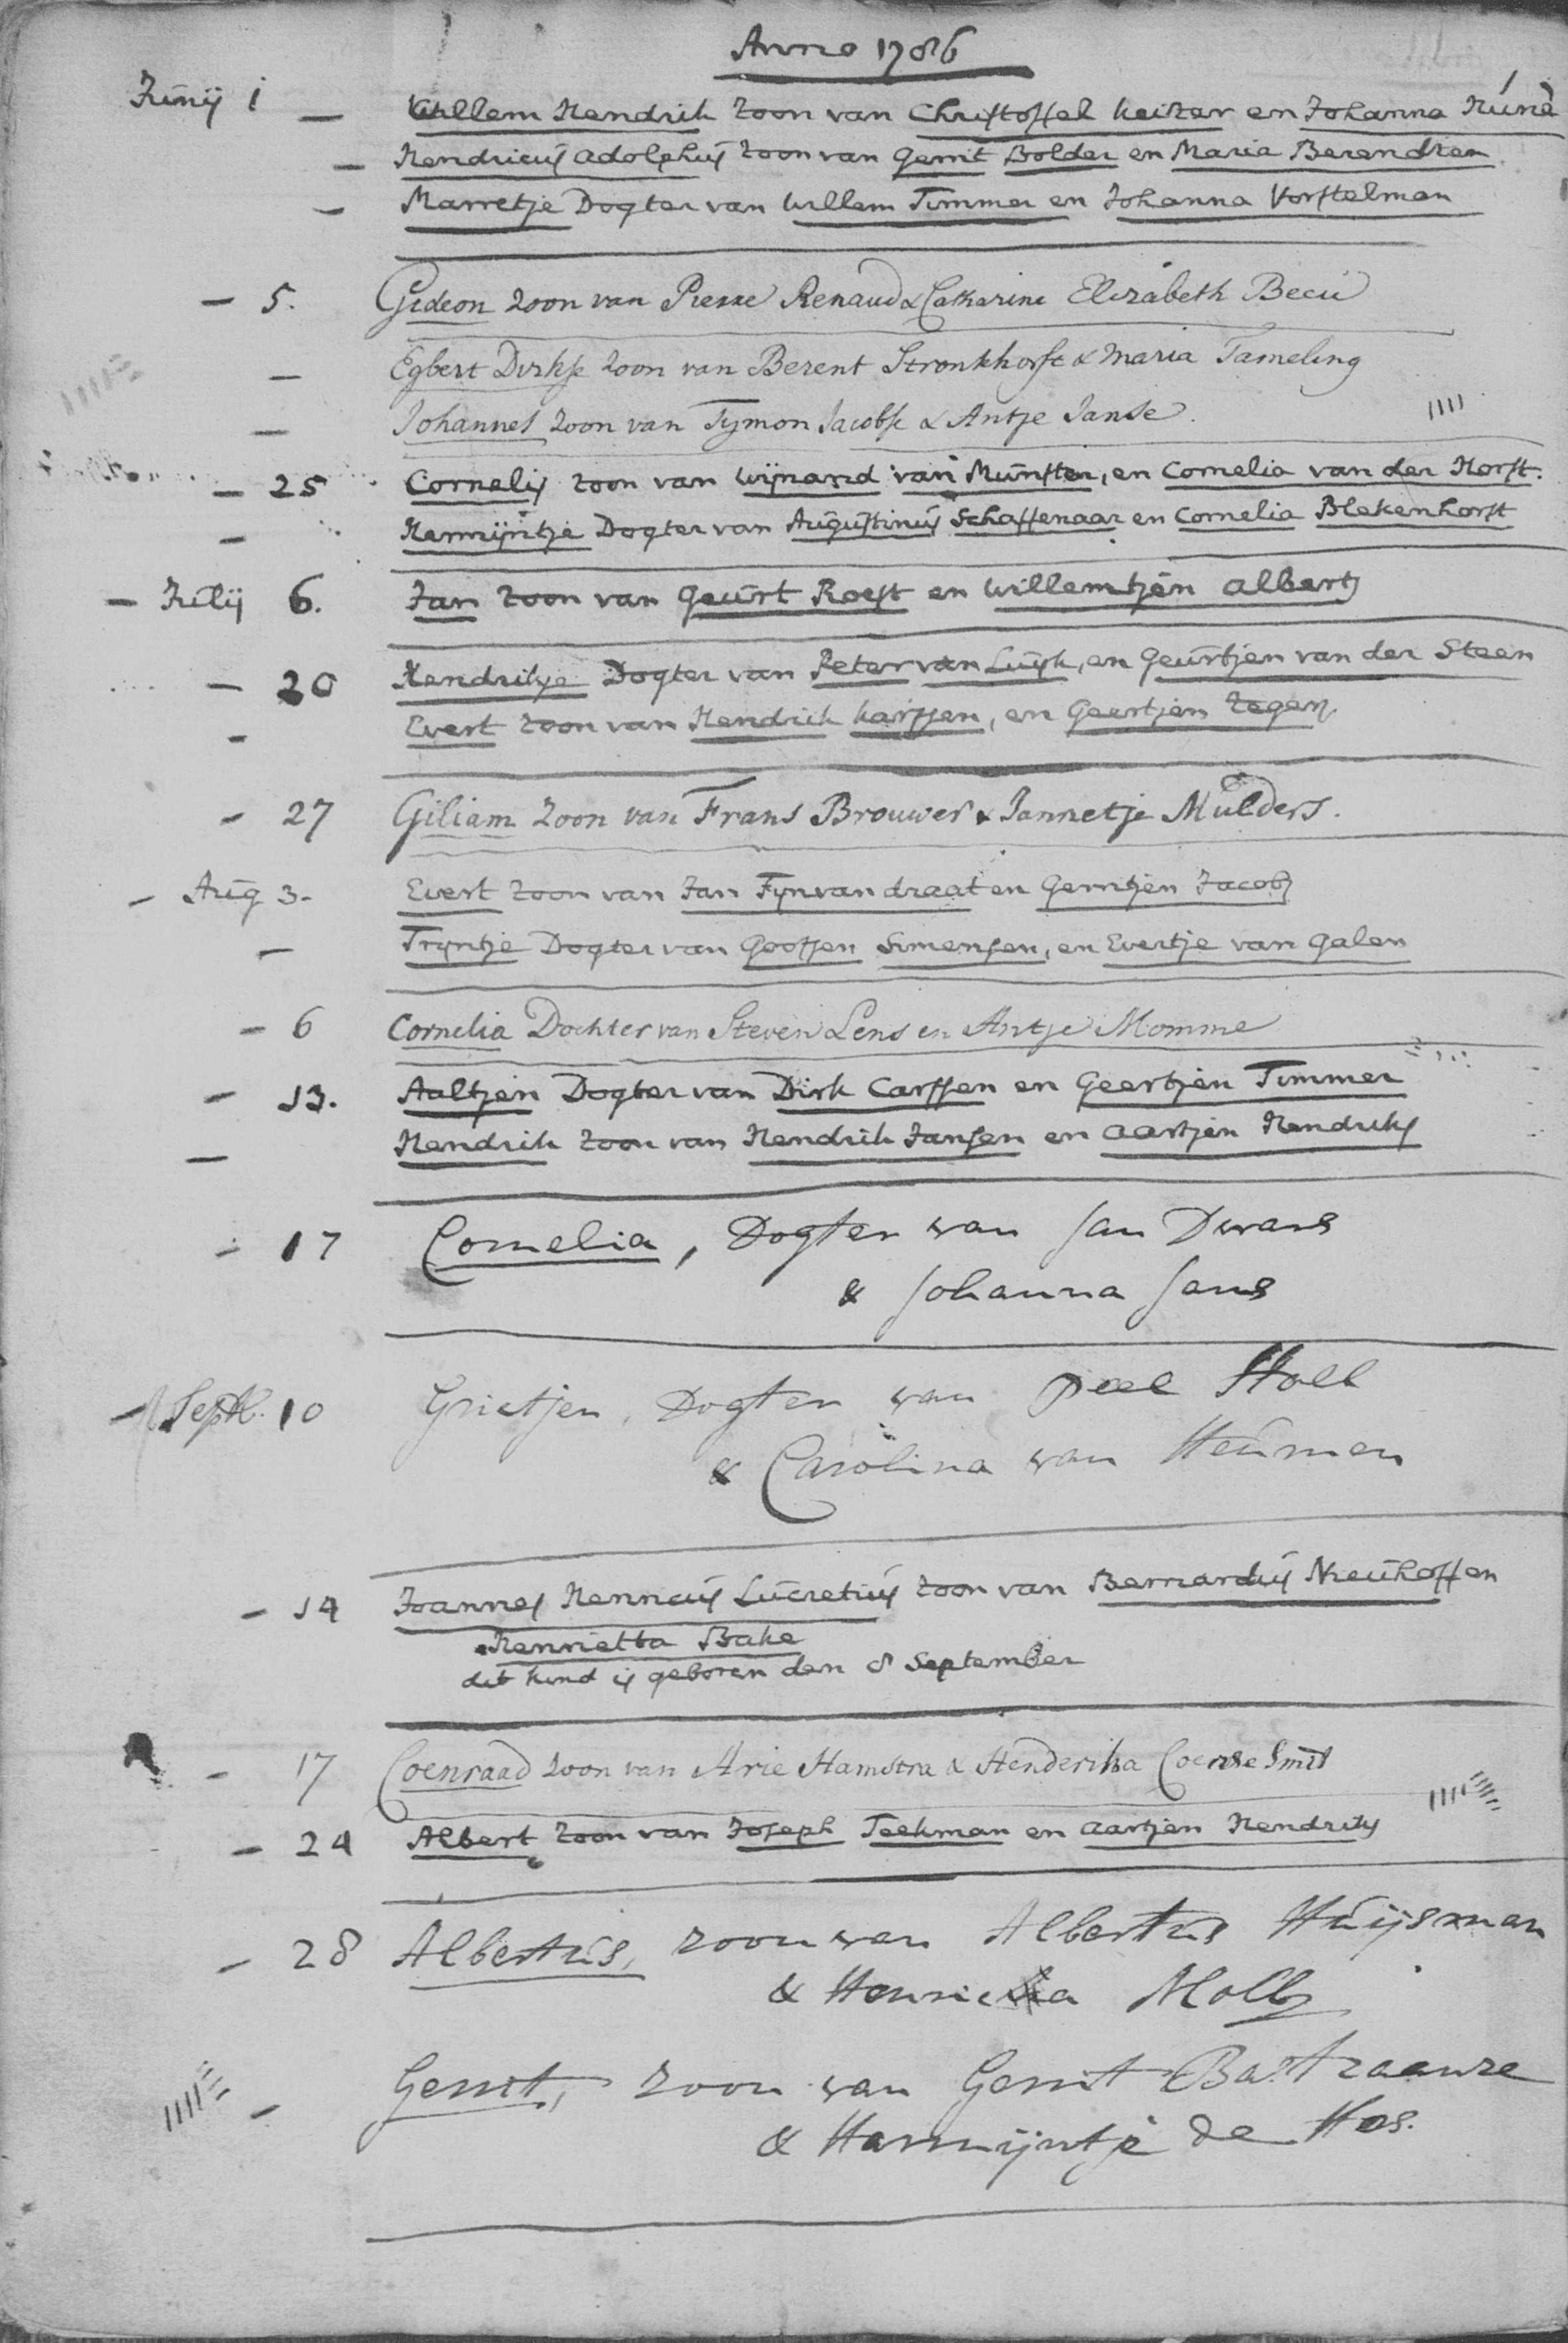 Anno 1786
Junij 1 — Willem Hendrik zoon van Christoffel Keizer en Johanna Kuné
— Hendricus Adolphus zoon van Gerrit Bolder en Maria Berendsen
— Marretje Dogter van Willem Timmer en Johanna Vorstelman
— 5. Gedeon zoon van Pierre Renaud & Catharine Elizabeth Becú
— Egbert Dirkse zoon van Berent Stronkhorst & Maria Tameling
— Johannes zoon van Tymon Jacobse & Antje Janse.
— 25 Cornelis zoon van Wijnand van Munster, en Cornelia van der Horst.
— Harmijntje Dogter van Augustinus Schaffenaar en Cornelia Blekenhorst
— Julij 6. Jan zoon van Geurt Roest en Willemtjen Alberts
— 20 Hendrikje Dogter van Peter van Luijk, en Geurtjen van der Steen
— Evert zoon van Hendrik Karssen, en Geertjen Zegers
— 27 Giliam zoon van Frans Brouwer & Jannetje Mulders.
— Aug 3. Evert zoon van Jan Fynvandraat en Gerritjen Jacobs
— Trijntje Dogter van Goossen Simensen, en Evertje van Galen
— 6 Cornelia Dochter van Steven Lens en Antje Momme
— 13. Aaltjen Dogter van Dirk Carssen en Geertjen Timmer
— Hendrik zoon van Hendrik Jansen en Aartjen Hendriks
— 17 Cornelia, Dogter van Jan Dwars
& Johanna Jans
— Septb. 10 Grietjen, Dogter van Peel Stoll
& Carolina van Heumen
— 14 Joannes Henricus Lucretius zoon van Bernardus Nieuhoff en
Henrietta Bake
dit kind is geboren den 8 September
— 17 Coenraad zoon van Arie Hamstra & Henderika Coense Smit
— 24 Albert zoon van Joseph Teekman en Aartjen Hendriks
— 28 Albertus, zoon van Albertus Huijsman
& Henrica Moll
— Gerrit, zoon van Gerrit Bastiaanze
& Harmijntje de Hos.